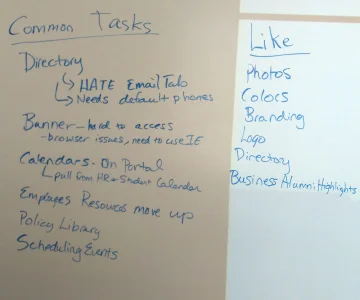 Common Tasks
Directory
↳ HATE Email Tab
↳ Needs default phones
Banner - hard to access
- browser issues, need to use IE
Calendars - On Portal
↳ pull from HR + Student Calendar
Employee Resources move up
Policy Library
Scheduling Events
Like
Photos
Colors
Branding
Logo
Directory
Business Alumni Highlights